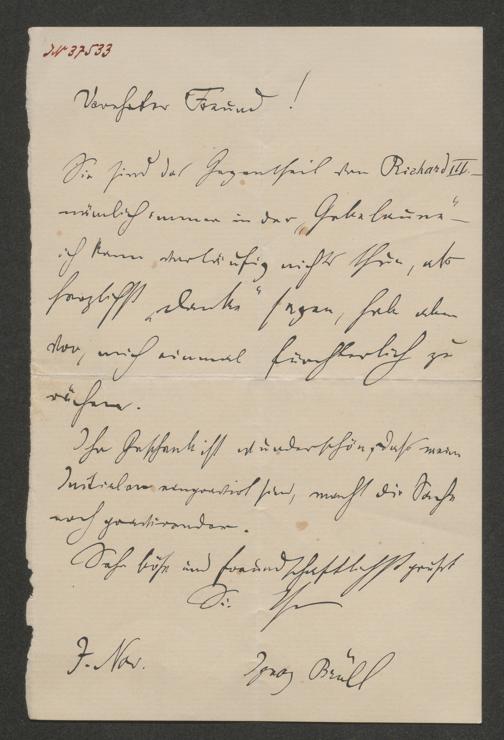 IN 37533
Verehrter Freund!
Sie sind das Gegentheil von Richard III. –
nämlich immer in der „Gebelaune“ –
ich kann vorläufig nichts thun, als
herzlichst „Danke“ sagen, habe aber
vor, mich einmal fürchterlich zu
rächen.
Ihr Geschenk ist wunderschön, daß meine
Initialen eingravirt sind, macht die Sache
noch gravirender.
Sehr böse und freundschaftlichst grüßt
Sie Ihr
7. Nov.
Ignaz Brüll